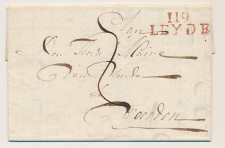 119
LEYDE
Aan
Den Heer Maire
Van Woerden
a
Woerden